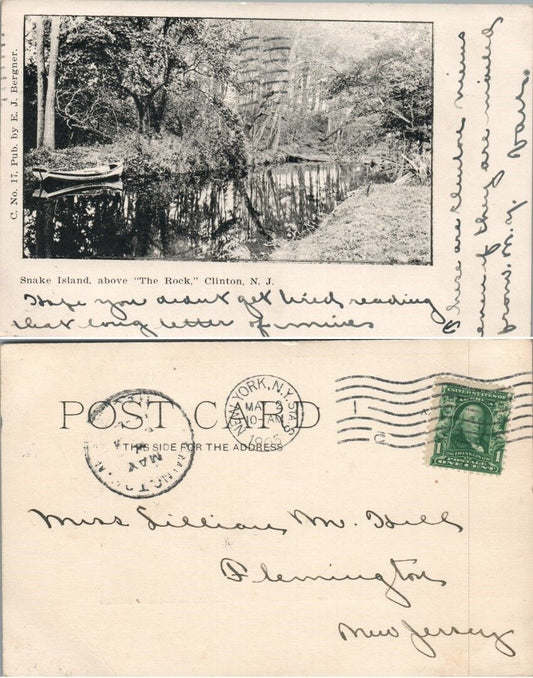 C. No. 17. Pub. by E. J. Bergner.
Snake Island, above "The Rock," Clinton, N. J.
Hope you didn't get tired reading
that long letter of mine
here are Clinton views
even if they are mailed
from N.Y.
POST CARD
THIS SIDE FOR THE ADDRESS
NEW YORK, N.Y. STA.
MAY 3
10-AM
1905
MAY
1
C
UNITED STATES OF
FRANKLIN
POSTAGE
ONE CENT
Miss Lillian M. Hill
Flemington
New Jersey